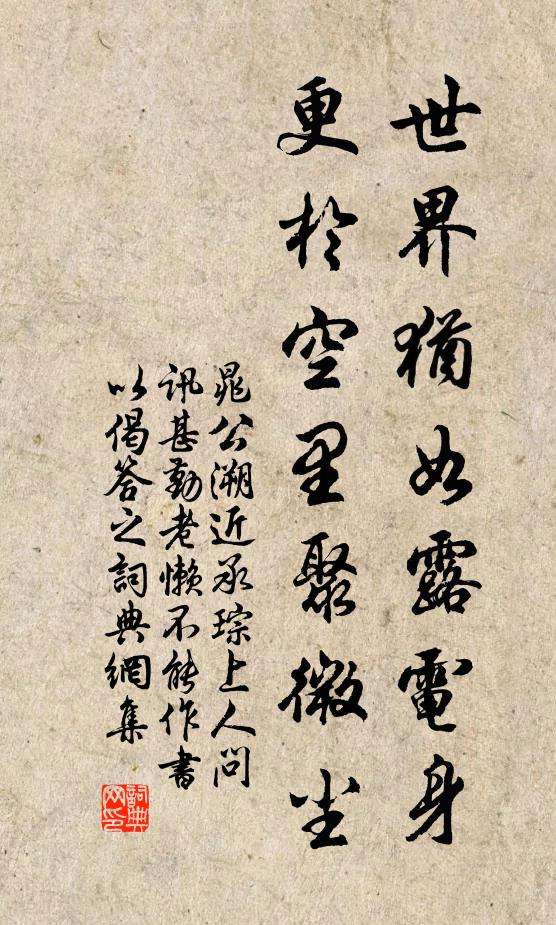 世界猶如露電身
更於空里聚微尘
晁公溯近承琮上人問
訊甚勤老懶不能作書
以偈答之詞典網集
詞典
网印